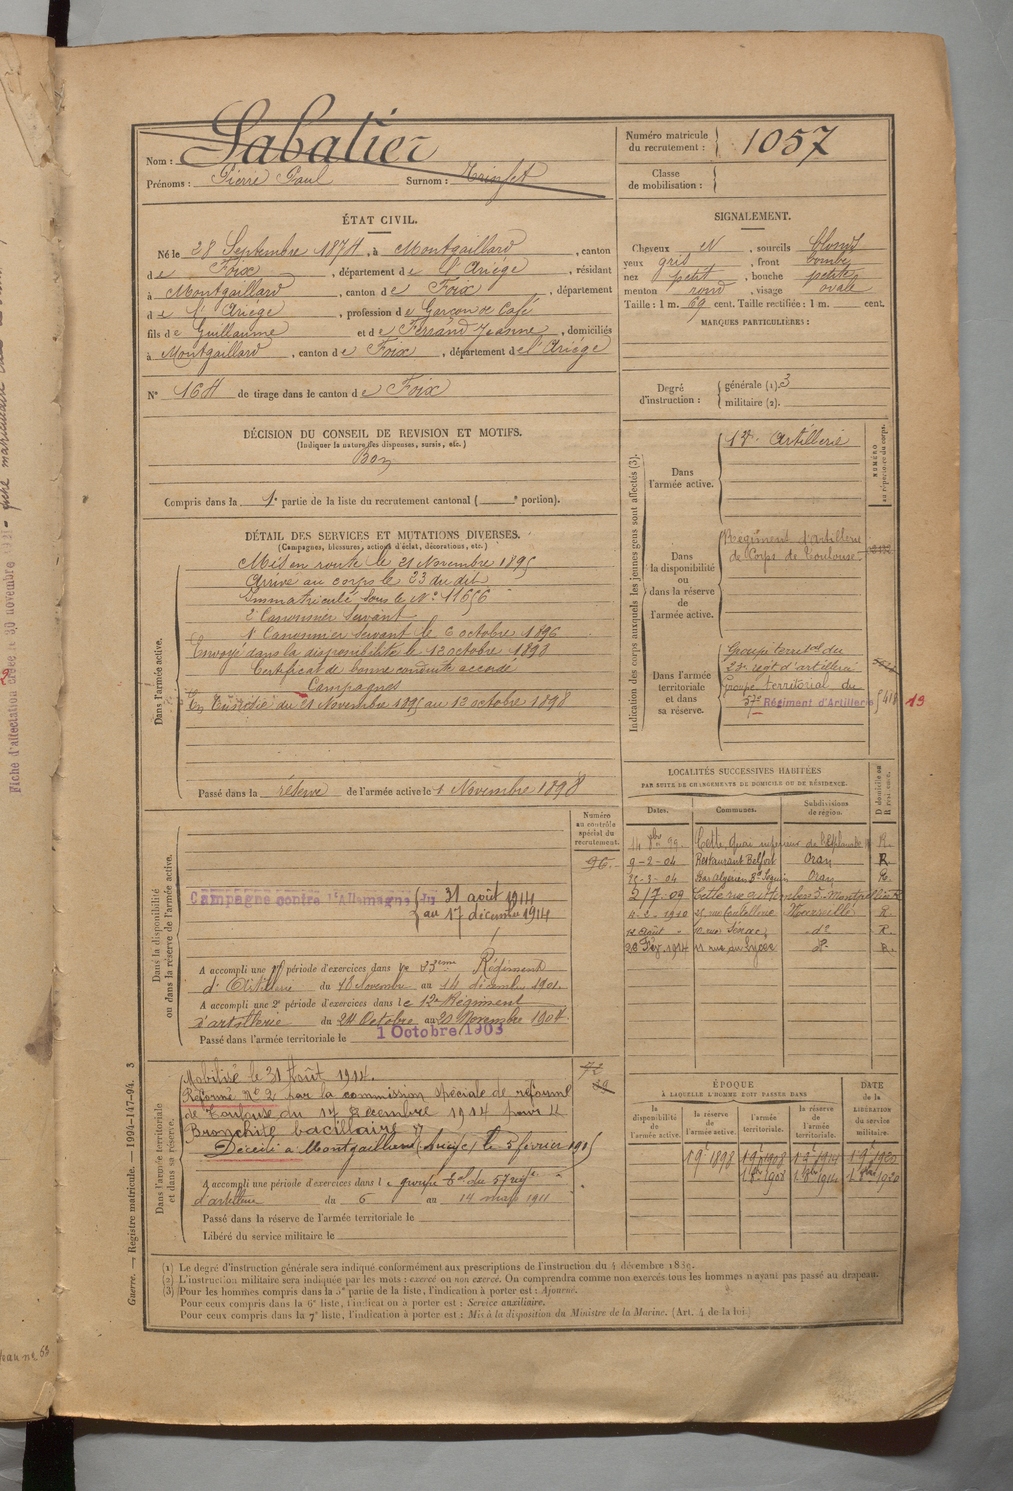 Nom : Sabatier
Prénoms : Pierre Paul Surnom :
Numéro matricule du recrutement : 1057
Classe de mobilisation :
ÉTAT CIVIL.
Né le 28 Septembre 1874, à Montgaillard, canton
de Foix, département de l'Ariège, résidant
à Montgaillard, canton de Foix, département
de l'Ariège, profession de Garçon de Café
fils de Guillaume et de Ferrand Jeanne, domiciliés
à Montgaillard, canton de Foix, département de l'Ariège
N° 164 de tirage dans le canton de Foix
DÉCISION DU CONSEIL DE REVISION ET MOTIFS.
(Indiquer la nature des dispenses, sursis, etc.)
Bon
Compris dans la 1e partie de la liste du recrutement cantonal ( e portion).
SIGNALEMENT.
Cheveux N, sourcils blonds
yeux gris, front bombé
nez petit, bouche petite
menton rond, visage ovale
Taille : 1 m. 69 cent. Taille rectifiée : 1 m. cent.
MARQUES PARTICULIÈRES :
Degré d'instruction : générale (1). 3
militaire (2).
DÉTAIL DES SERVICES ET MUTATIONS DIVERSES.
(Campagnes, blessures, actions d'éclat, décorations, etc.)
Dans l'armée active.
Mis en route le 21 Novembre 1895
Arrivé au corps le 23 du dit
Immatriculé sous le N° 11656
2e Canonnier Servant
1e Canonnier servant le 6 octobre 1896
Envoyé dans la disponibilité le 12 octobre 1898
Certificat de bonne conduite accordé
Campagnes
En Tunisie du 21 Novembre 1895 au 12 octobre 1898
Passé dans la réserve de l'armée active le 1 Novembre 1898
Indication des corps auxquels les jeunes gens sont affectés (3).
NUMÉRO au répertoire du corps.
Dans l'armée active.
Artillerie
Dans la disponibilité ou dans la réserve de l'armée active.
Régiment d'artillerie
de Corps de Toulouse
Dans l'armée territoriale et dans sa réserve.
Groupe territ al du
23e régt d'artillerie
Groupe territorial du
57e Régiment d'Artillerie
418
13
Dans la disponibilité ou dans la réserve de l'armée active.
Numéro au contrôle spécial du recrutement.
96
Campagne contre l'Allemagne du 31 août 1914
au 17 décembre 1914
A accompli une 1e période d'exercices dans le 23eme Régiment
d'Artillerie du 18 Novembre au 14 décemb 1901
A accompli une 2e période d'exercices dans le 12e Régiment
d'artillerie du 24 Octobre au 20 Novembre 1904
Passé dans l'armée territoriale le 1 Octobre 1903
LOCALITÉS SUCCESSIVES HABITÉES
PAR SUITE DE CHANGEMENTS DE DOMICILE OU DE RÉSIDENCE.
Dates. Communes. Subdivisions de région. D domicile ou R résidence.
Cette, Quai de l'Esplanade R
9-2-04 Restaurant Belfort Oran R
Oran R
2/7 09 Cette Montpellier R
1910 Marseille R
10 rue Sénac d° R
20 Fév 1914 11 rue du Lycée d° R
Dans l'armée territoriale et dans sa réserve.
72
Mobilisé le 31 Août 1914.
Réformé N° 2 par la commission spéciale de réforme
de Toulouse du 17 décembre 1914 pour "
Bronchite bacillaire "
Décédé à Montgailhard (Ariège) le 5 février 1915
A accompli une période d'exercices dans le groupe t al du 57e régt
d'artillerie du 6 au 14 mars 1911
Passé dans la réserve de l'armée territoriale le
Libéré du service militaire le
ÉPOQUE À LAQUELLE L'HOMME DOIT PASSER DANS
DATE de la LIBÉRATION du service militaire.
la disponibilité de l'armée active. la réserve de l'armée active. l'armée territoriale. la réserve de l'armée territoriale.
1 9 1898 1 9 1908 1 9 1914 1 9 1920
1 8bre 1908 1 8bre 1914 1 8bre 1920
(1) Le degré d'instruction générale sera indiqué conformément aux prescriptions de l'instruction du 4 décembre 1889.
(2) L'instruction militaire sera indiquée par les mots : exercé ou non exercé. On comprendra comme non exercés tous les hommes n'ayant pas passé au drapeau.
(3) Pour les hommes compris dans la 5e partie de la liste, l'indication à porter est : Ajourné.
Pour ceux compris dans la 6e liste, l'indication à porter est : Service auxiliaire.
Pour ceux compris dans la 7e liste, l'indication à porter est : Mis à la disposition du Ministre de la Marine. (Art. 4 de la loi.)
Guerre. — Registre matricule. — 1994-147-94. 3